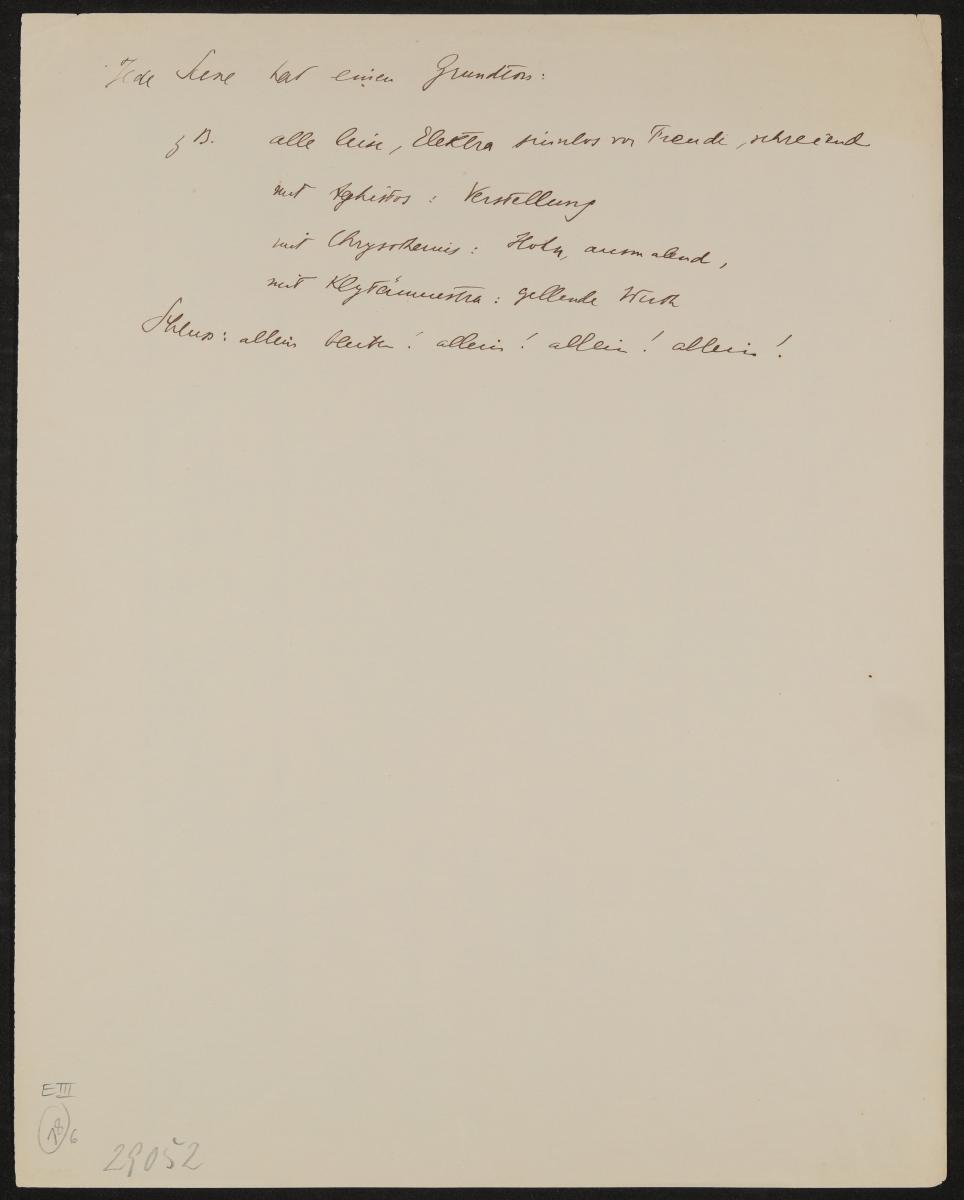 Jede Scene hat einen Grundton:
z B. alle leise, Elektra sinnlos vor Freude, schreiend
mit Aghistos: Verstellung
mit Chrysothemis: Hohn, ausmalend,
mit Klytämnestra: gellende Wuth
Schluss: allein! allein! allein! allein!
E III
6
29052